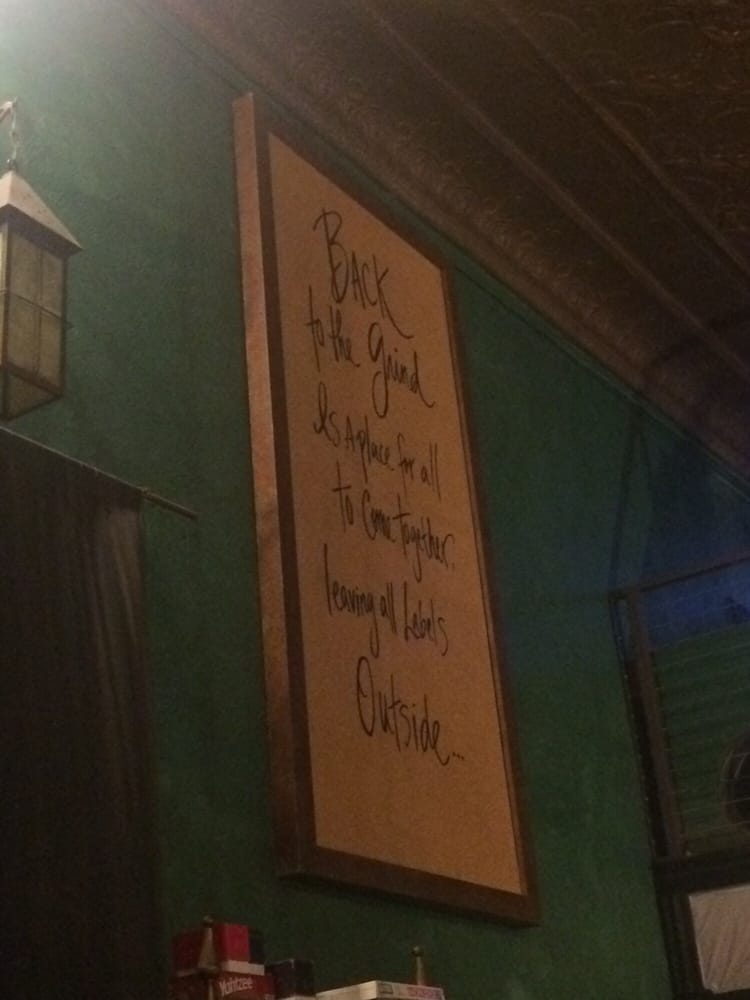 BACK
to the grind
Is A place for all
to Come together.
leaving all Labels
Outside...
Yahtzee